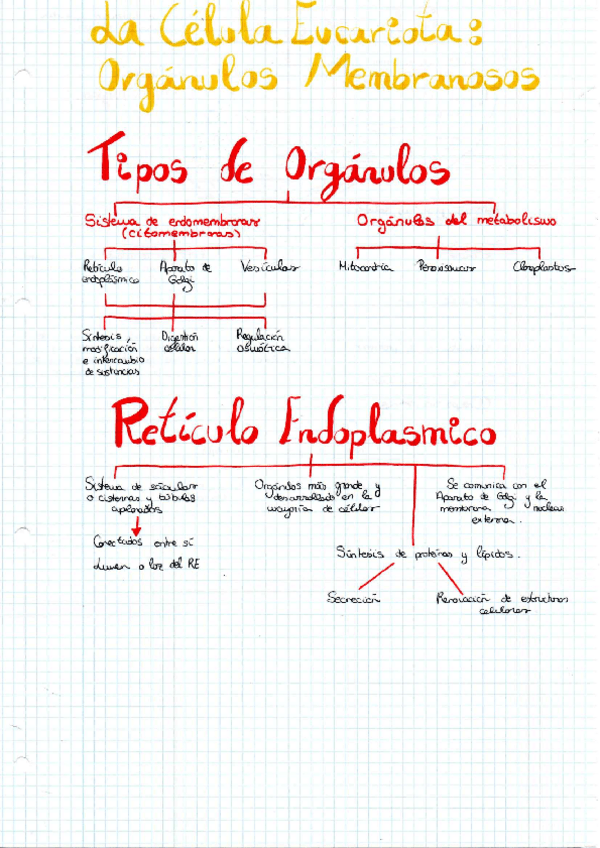 La Célula Eucariota:
Orgánulos Membranosos
Tipos de Orgánulos
Sistema de endomembranas
(citomembranas)
Orgánulos del metabolismo
Retículo
endoplásmico
Aparato de
Golgi
Vesículas
Mitocondria
Peroxisomas
Cloroplastos
Síntesis,
modificación
e intercambio
de sustancias
Digestión
celular
Regulación
osmótica
Retículo Endoplasmico
Sistema de sáculos
o cisternas y túbulos
aplanados
Conectados entre sí
Lumen o luz del RE
Orgánulos más grande y
desarrollado en la
mayoría de células
Se comunica con el
Aparato de Golgi y la
membrana nuclear
externa.
Síntesis de proteínas y lípidos.
Secreción
Renovación de estructuras
celulares